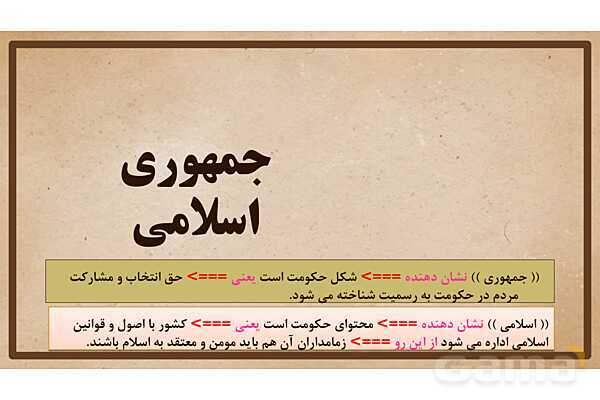 جمهوری
اسلامی
(( جمهوری )) نشان دهنده ===> شکل حکومت است یعنی ===> حق انتخاب و مشارکت
مردم در حکومت به رسمیت شناخته می شود.
(( اسلامی )) نشان دهنده ===> محتوای حکومت است یعنی ===> کشور با اصول و قوانین
اسلامی اداره می شود از این رو ===> زمامداران آن هم باید مومن و معتقد به اسلام باشند.
Gama